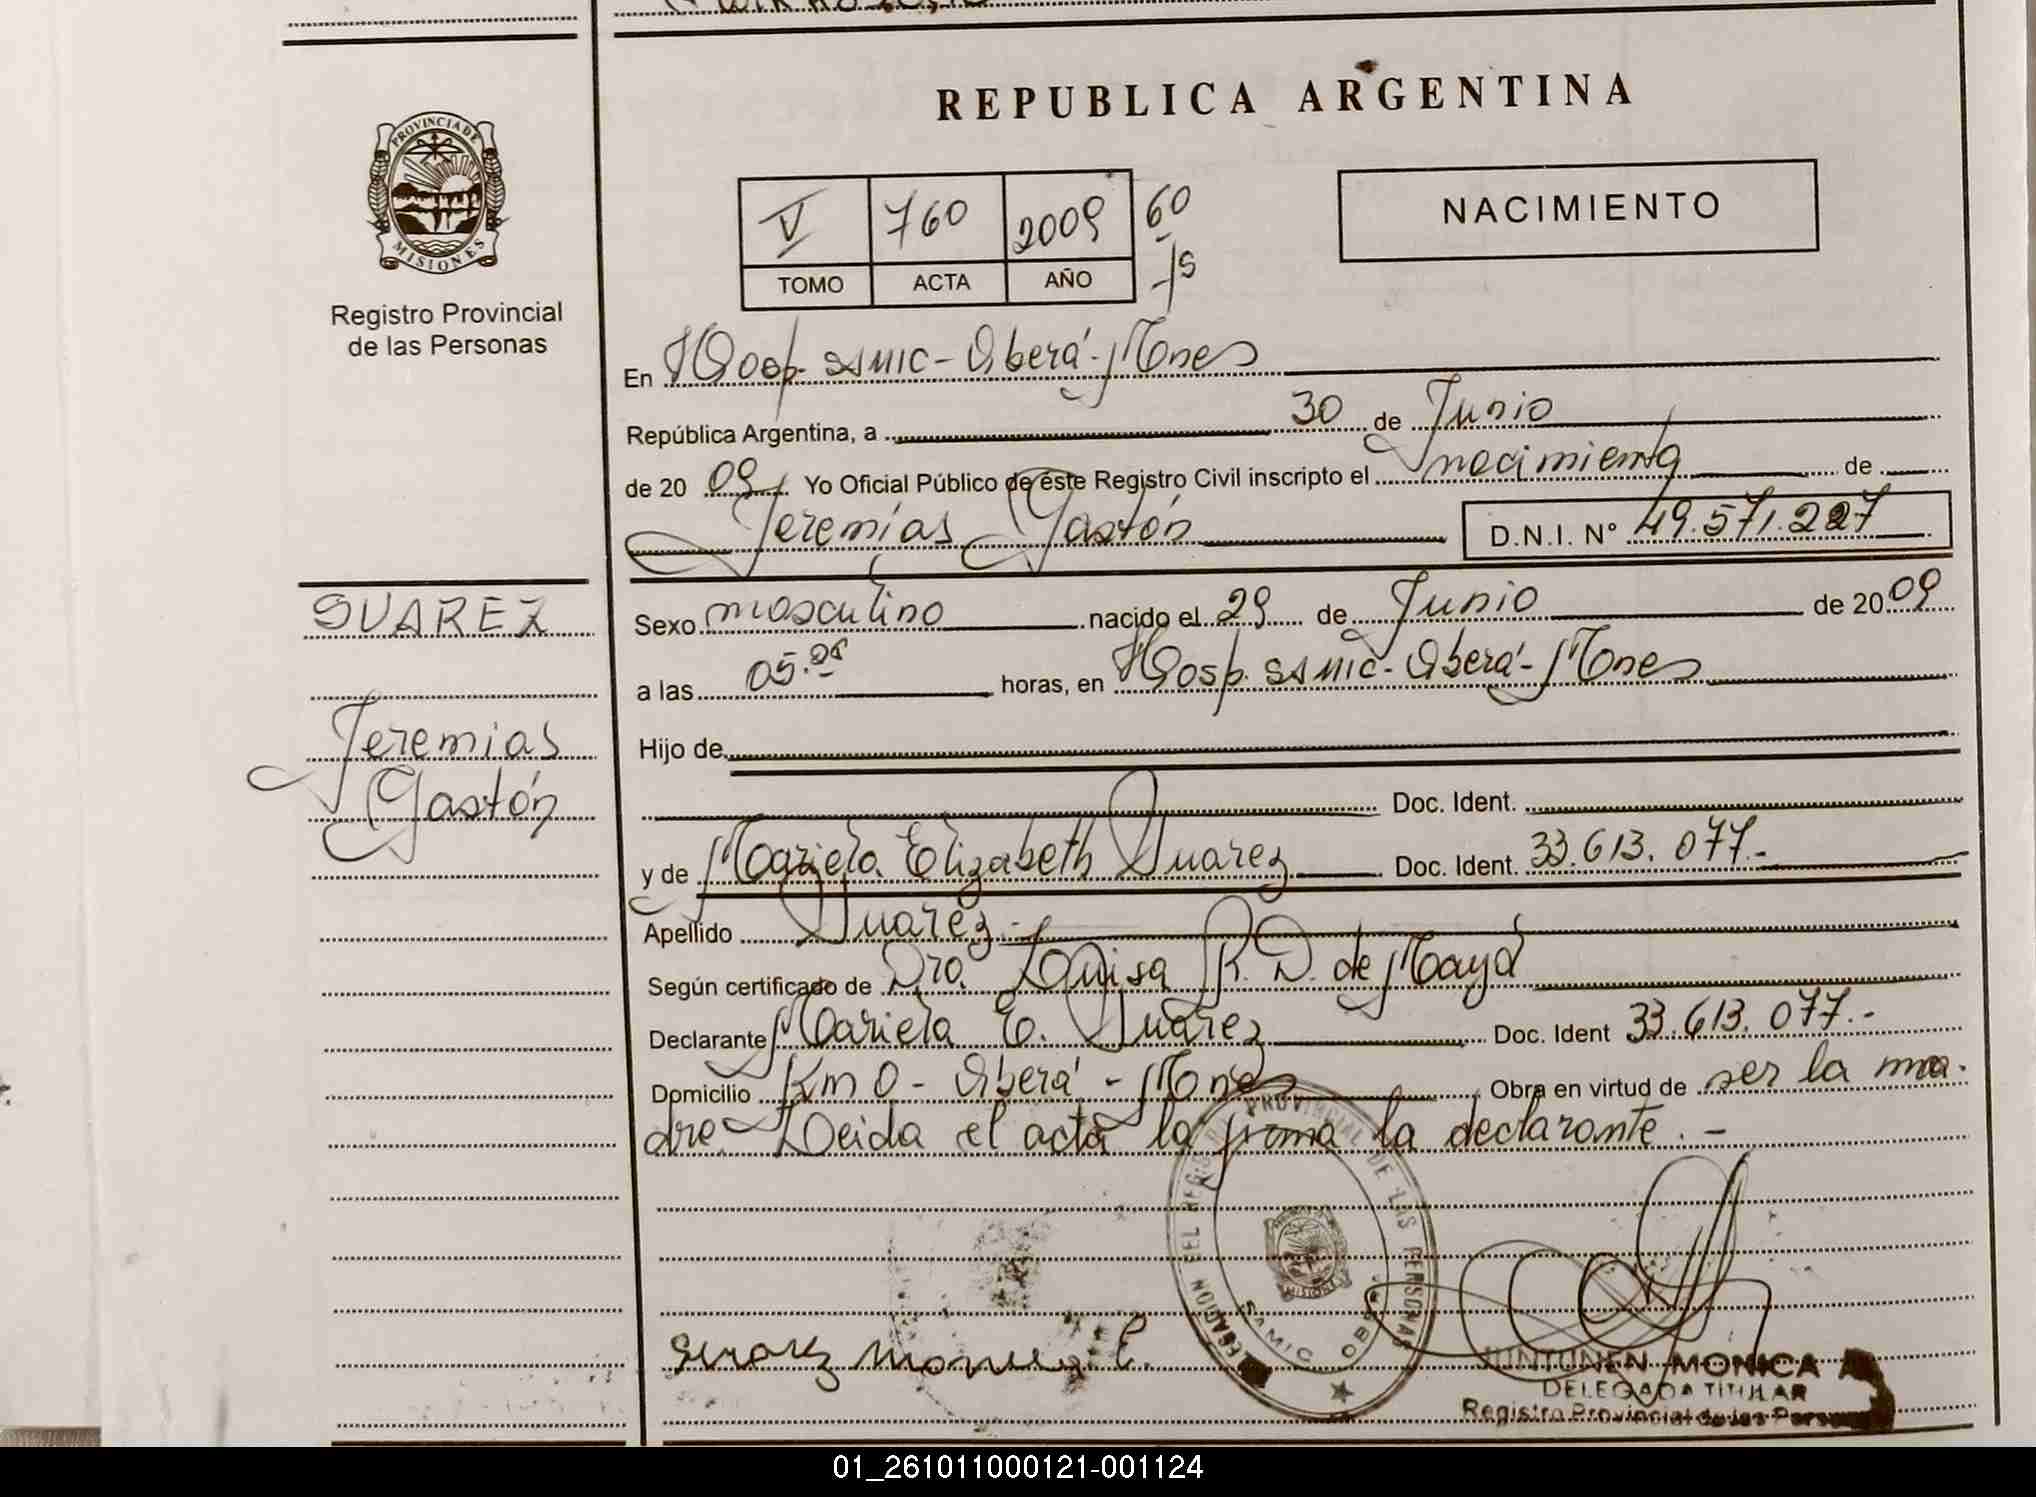 REPUBLICA ARGENTINA
PROVINCIA DE
MISIONES
Registro Provincial
de las Personas
V 760 2009 60
TOMO ACTA AÑO
NACIMIENTO
En Hosp. SAMIC - Oberá - Mnes
República Argentina, a 30 de Junio
de 20 09 Yo Oficial Público de éste Registro Civil inscripto el nacimiento de
Jeremías Gastón D.N.I. N° 49.571.227
SUAREZ
Jeremías
Gastón
Sexo masculino nacido el 29 de Junio de 20 09
a las 05. horas, en Hosp. SAMIC - Oberá - Mnes
Hijo de
Doc. Ident.
y de Mariela Elizabeth Suarez Doc. Ident. 33.613.077.-
Apellido Suarez.-
Según certificado de Dra. Luisa R. D. de Mayá
Declarante Mariela E. Suarez Doc. Ident 33.613.077.-
Domicilio Km 0 - Oberá - Mnes Obra en virtud de ser la ma-
dre. Leida el acta la firma la declarante.-
PROVINCIAL DE LAS PERSONAS
SAMIC
MISIONES
JUNTUNEN MONICA
DELEGADA TITULAR
Registro Provincial de las Personas
01_261011000121-001124